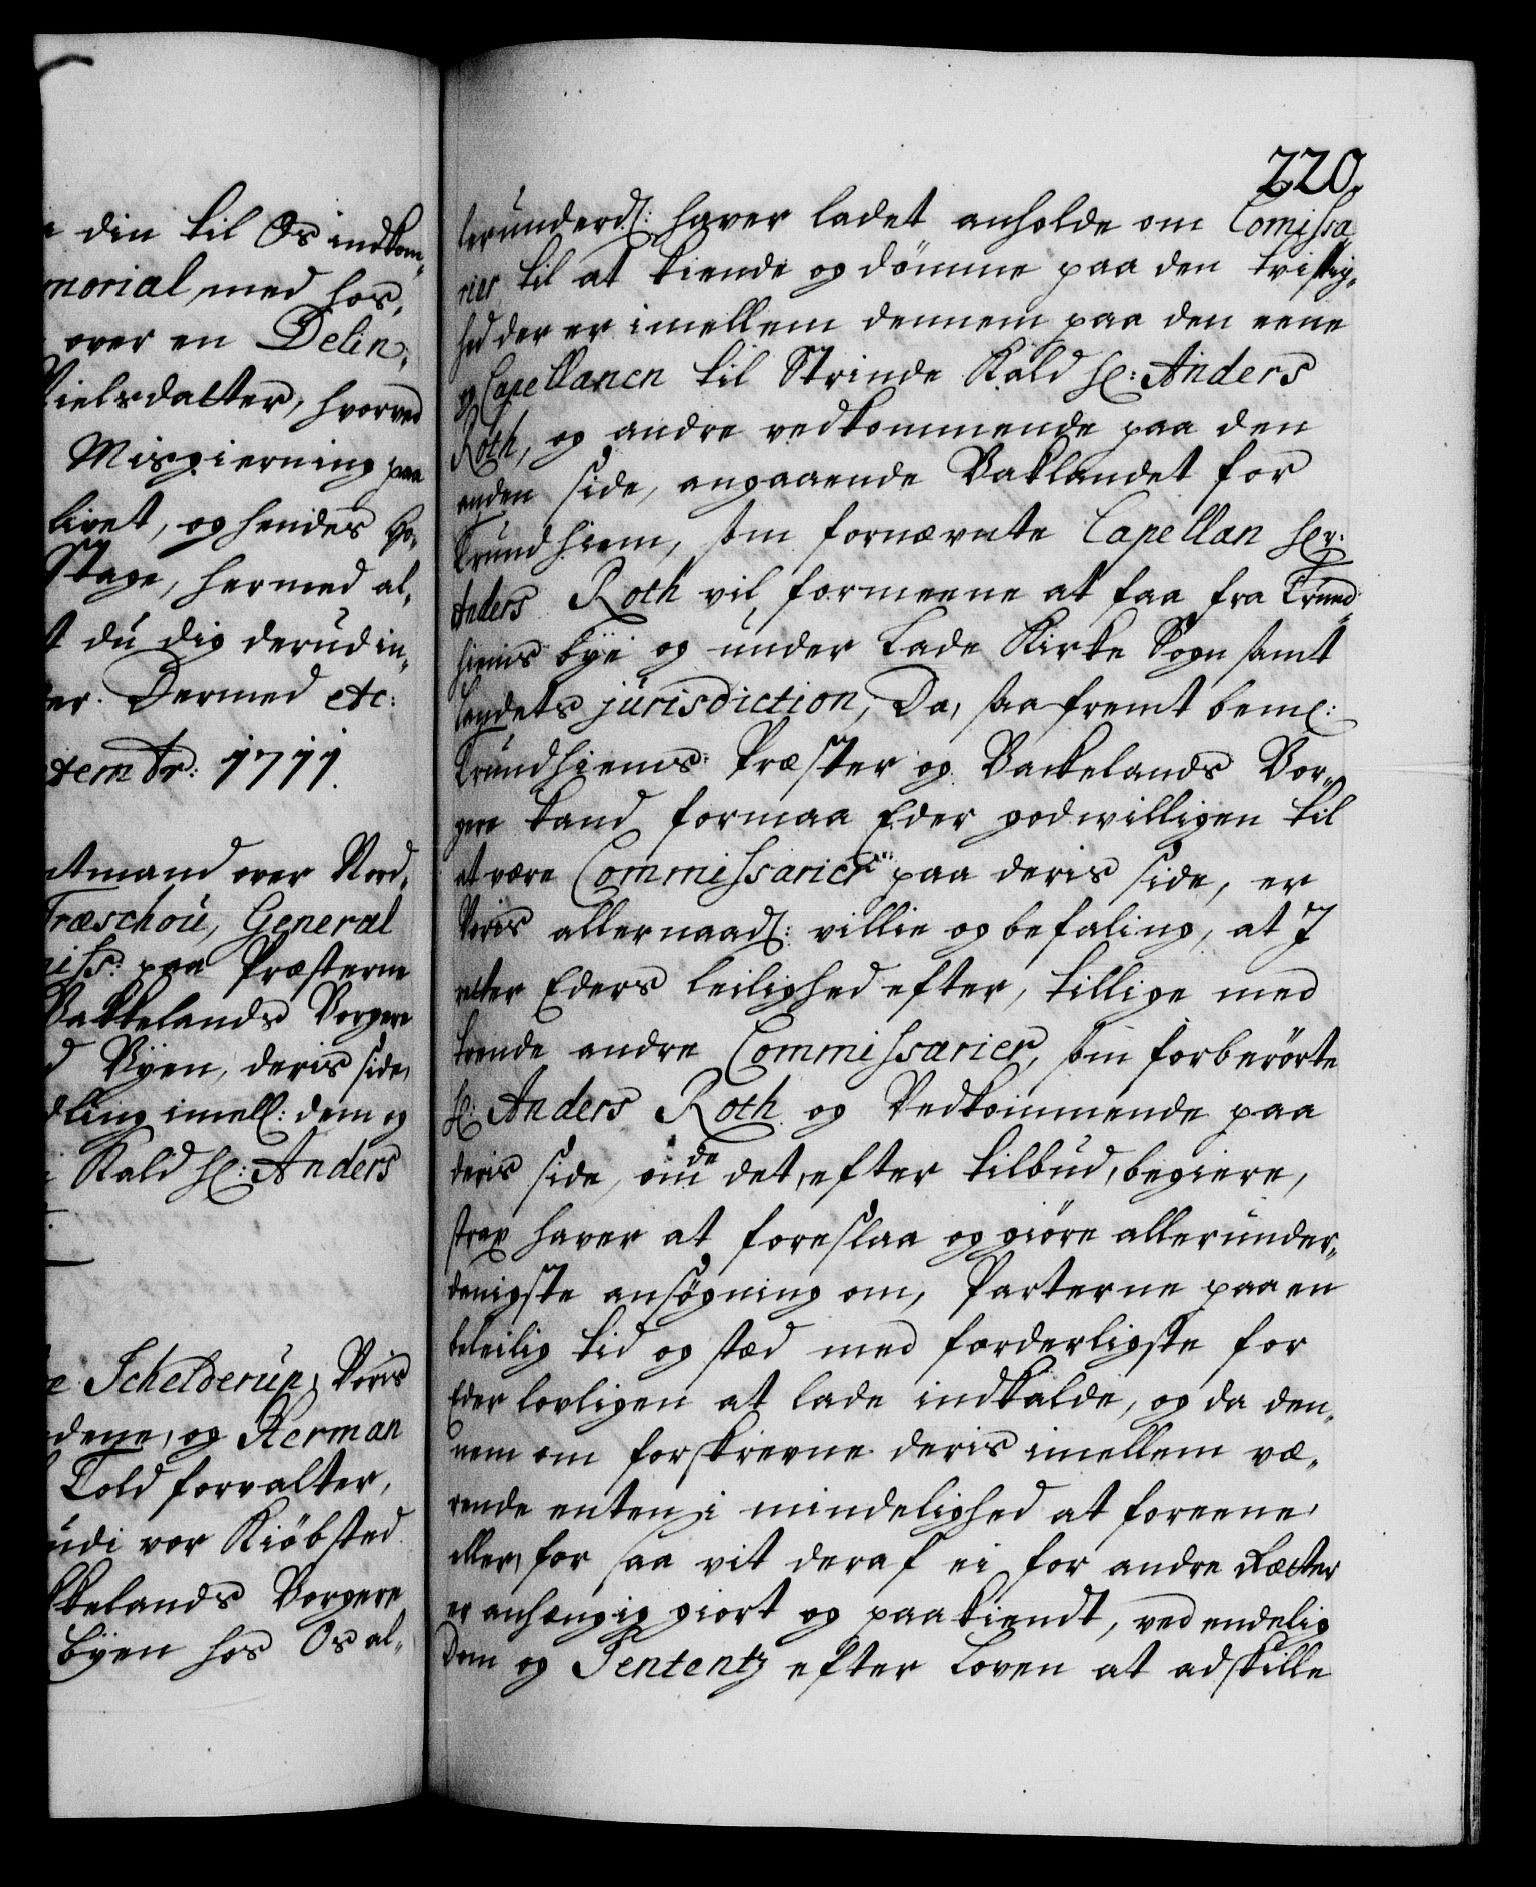 din til Os indkom¬
morial, med hos¬
over en Delin¬
Nielsdatter, hvorved
Misgierning paa
livet, og hendes Ho¬
Stage, hermed al¬
du dig derudin¬
Dermed etc:
temBr: 1711.
Amtmand over Nord¬
Træschou, General
miss: paa Præsterne
Bakkelands Borgere
Byen, deris side,
dling imell: dem og
Kald Hl: Anders
Schelderup, Voris
dene, og Herman
Told forvalter,
udi vor Kiöbsted
kkelands Borgere
byen hos Os al¬
220.
lerunderd: haver ladet anholde om Comissa¬
rier til at kiende og dömme paa den tvistig¬
hed der er imellem dennem paa den eene
og Capellanen til Strinde Kald Hl: Anders
Roth, og andre vedkommende paa den
anden side, angaaende Baklandet for
Trundhiem, som fornævnte Capellan Hr:
Anders Roth vil formeene at faa fra Trund¬
hiems bye og under Lade Kirke Sogn samt
Landets jurisdiction, Da, saafremt beml:
Trundhiems Præster og Backelands Bor¬
gere kand formaa Eder godwilligen til
at være Commissarier paa deris side, er
Voris allernaad: villie og befaling, at J
retter Eders leilighed efter, tillige med
tvende andre Commissarier, som forberörte
Hl: Anders Roth og Vedkommende paa
deris side, om de det, efter tilbud, begiere,
strax haver at foreslaa og giöre allerunder¬
danigste ansögning om, Parterne paa en
beleilig tid og stæd med forderligste for
Eder lovligen at lade indkalde, og da den¬
nem om forskrevne deris imellem væ¬
rende enten i mindelighed at foreene
eller, for saa vit deraf ei for andre Rætter
er anhængig giort og paakiendt, ved endelig
Dom og Sententz efter Loven at adskille